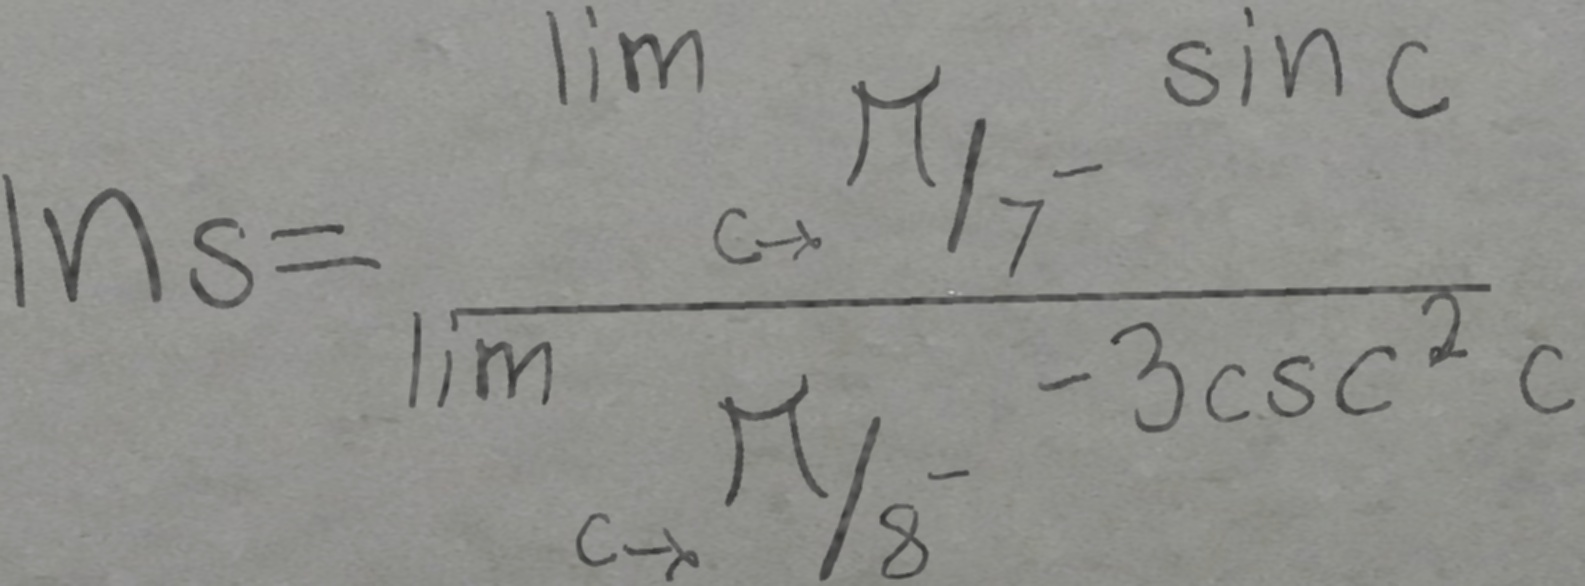 ln s = \frac{\lim_{c \to \pi/7^-} \sin c}{\lim_{c \to \pi/8^-} -3\csc^2 c}